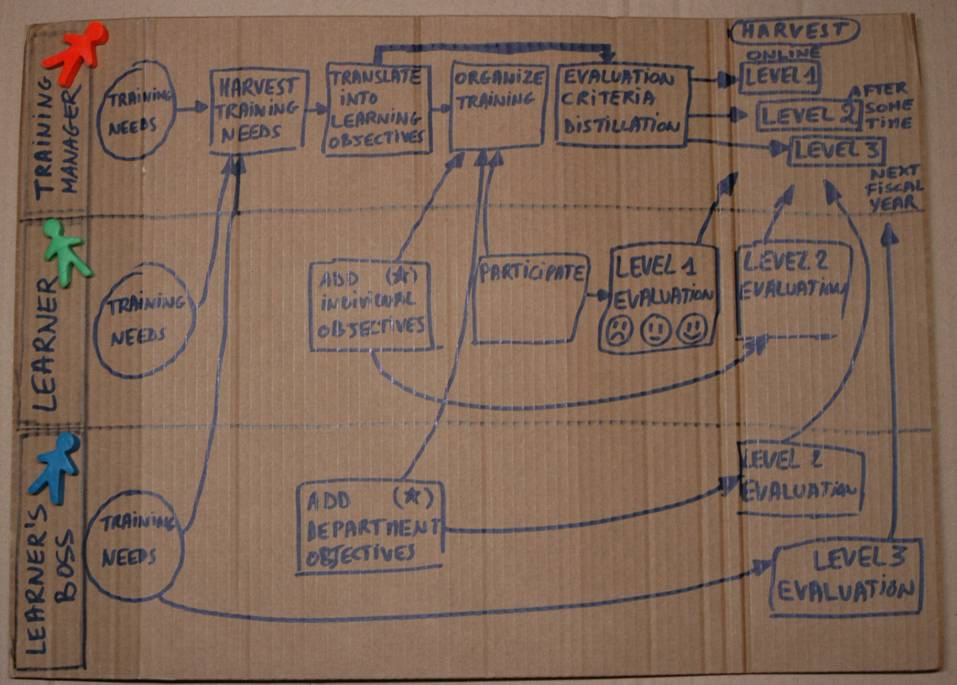 TRAINING
MANAGER
TRAINING
NEEDS
HARVEST
TRAINING
NEEDS
TRANSLATE
INTO
LEARNING
OBJECTIVES
ORGANIZE
TRAINING
EVALUATION
CRITERIA
DISTILLATION
HARVEST
ONLINE
LEVEL 1
LEVEL 2
AFTER
SOME
TIME
LEVEL 3
NEXT
FISCAL
YEAR
LEARNER
TRAINING
NEEDS
ADD (☆)
INDIVIDUAL
OBJECTIVES
PARTICIPATE
LEVEL 1
EVALUATION
LEVEL 2
EVALUATION
LEARNER'S
BOSS
TRAINING
NEEDS
ADD (☆)
DEPARTMENT
OBJECTIVES
LEVEL 2
EVALUATION
LEVEL 3
EVALUATION